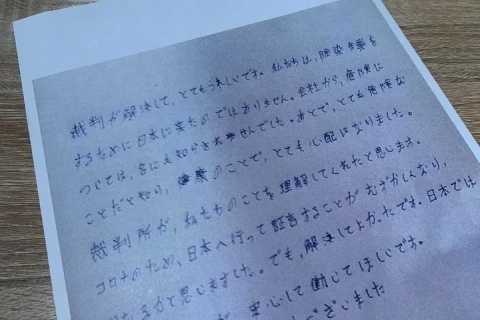 裁判が解決して、とてもうれしいです。私たちは、除染作業を
するために日本に来たのではありません。会社から、危険に
ついては、なにも知らされませんでした。あとで、とても危険な
ことだと知り、健康のことで、とても心配になりました。
裁判所が、私たちのことを理解してくれたと思います。
コロナのため、日本へ行って証言することがむずかしくなり、
と思いました。でも、解決してよかったです。日本では
が、安心して働いてほしいです。
ございました